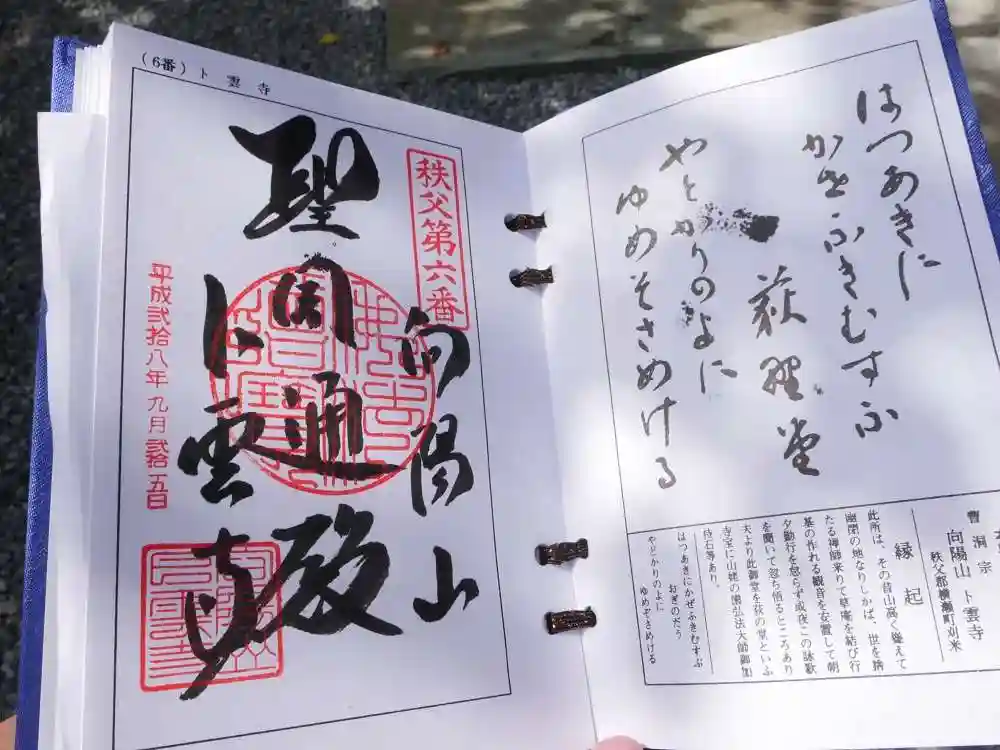 はつあきに
かせふきむすふ
荻野堂
やとかりのよに
ゆめそさめける
曹洞宗
向陽山 卜雲寺
秩父郡横瀬町刈米
縁起
此所は、その昔山高く聳えて
幽閑の地なりしかば、世を捨
たる禅師来りて草庵を結び行
基の作れる観音を安置して朝
夕勤行を怠らず或夜この詠歌
を聞いて忽ち悟るところあり
夫より此御堂を荻の堂といふ
寺宝に山姥の歯弘法大師御加
持石等あり。
はつあきにかぜふきむすぶ
おぎのだう
やどかりのよに
ゆめぞさめける
(6番) ト雲寺
秩父第六番
向陽山
聖圓通殿
卜雲寺
平成弐拾八年九月弐拾五日